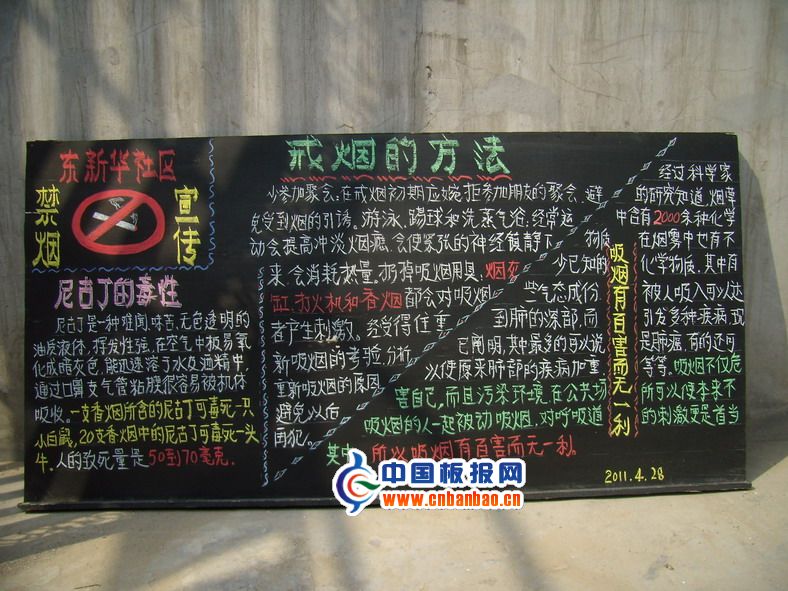 东新华社区
禁烟
宣传
尼古丁的毒性
尼古丁是一种难闻、味苦、无色透明的
油质液体,挥发性强,在空气中极易氧
化成暗灰色,能迅速溶于水及酒精中,
通过口鼻支气管粘膜很容易被机体
吸收。一支香烟所含的尼古丁可毒死一只
小白鼠,20支香烟中的尼古丁可毒死一头
牛。人的致死量是50到70毫克.
戒烟的方法
少参加聚会,在戒烟初期应婉拒参加朋友的聚会,避
免受到烟的引诱。游泳、踢球和洗蒸气浴,经常运
动会提高冲淡烟瘾,会使紧张的神经镇静下
来,会消耗热量。扔掉吸烟用具,烟灰
缸,打火机和香烟都会对吸烟
者产生刺激。经受得住重
新吸烟的考验,分析
重新吸烟的原因
避免以后
再犯.
吸烟有百害而无一利
经过科学家
的研究知道,烟草
中含有2000多种化学
物质,在烟雾中也有不
少已知的化学物质,其中有
些气态成份被人吸入可以达
到肺的深部,而引发多种疾病,现
已阐明,其中最多的可以说是肺癌,有的还可
以使原来肺部的疾病加重等等。吸烟不仅危
害自己,而且污染环境,在公共场所可以使本来不
吸烟的人一起被动吸烟,对呼吸道的刺激更是首当
其冲.所以吸烟有百害而无一利.
2011.4.28
中国板报网
www.cnbanbao.cn